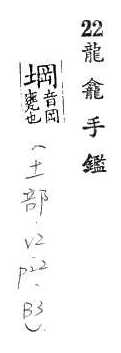 22龍龕手鑑
堈音岡甕也
(土部.v2.p22.B3)